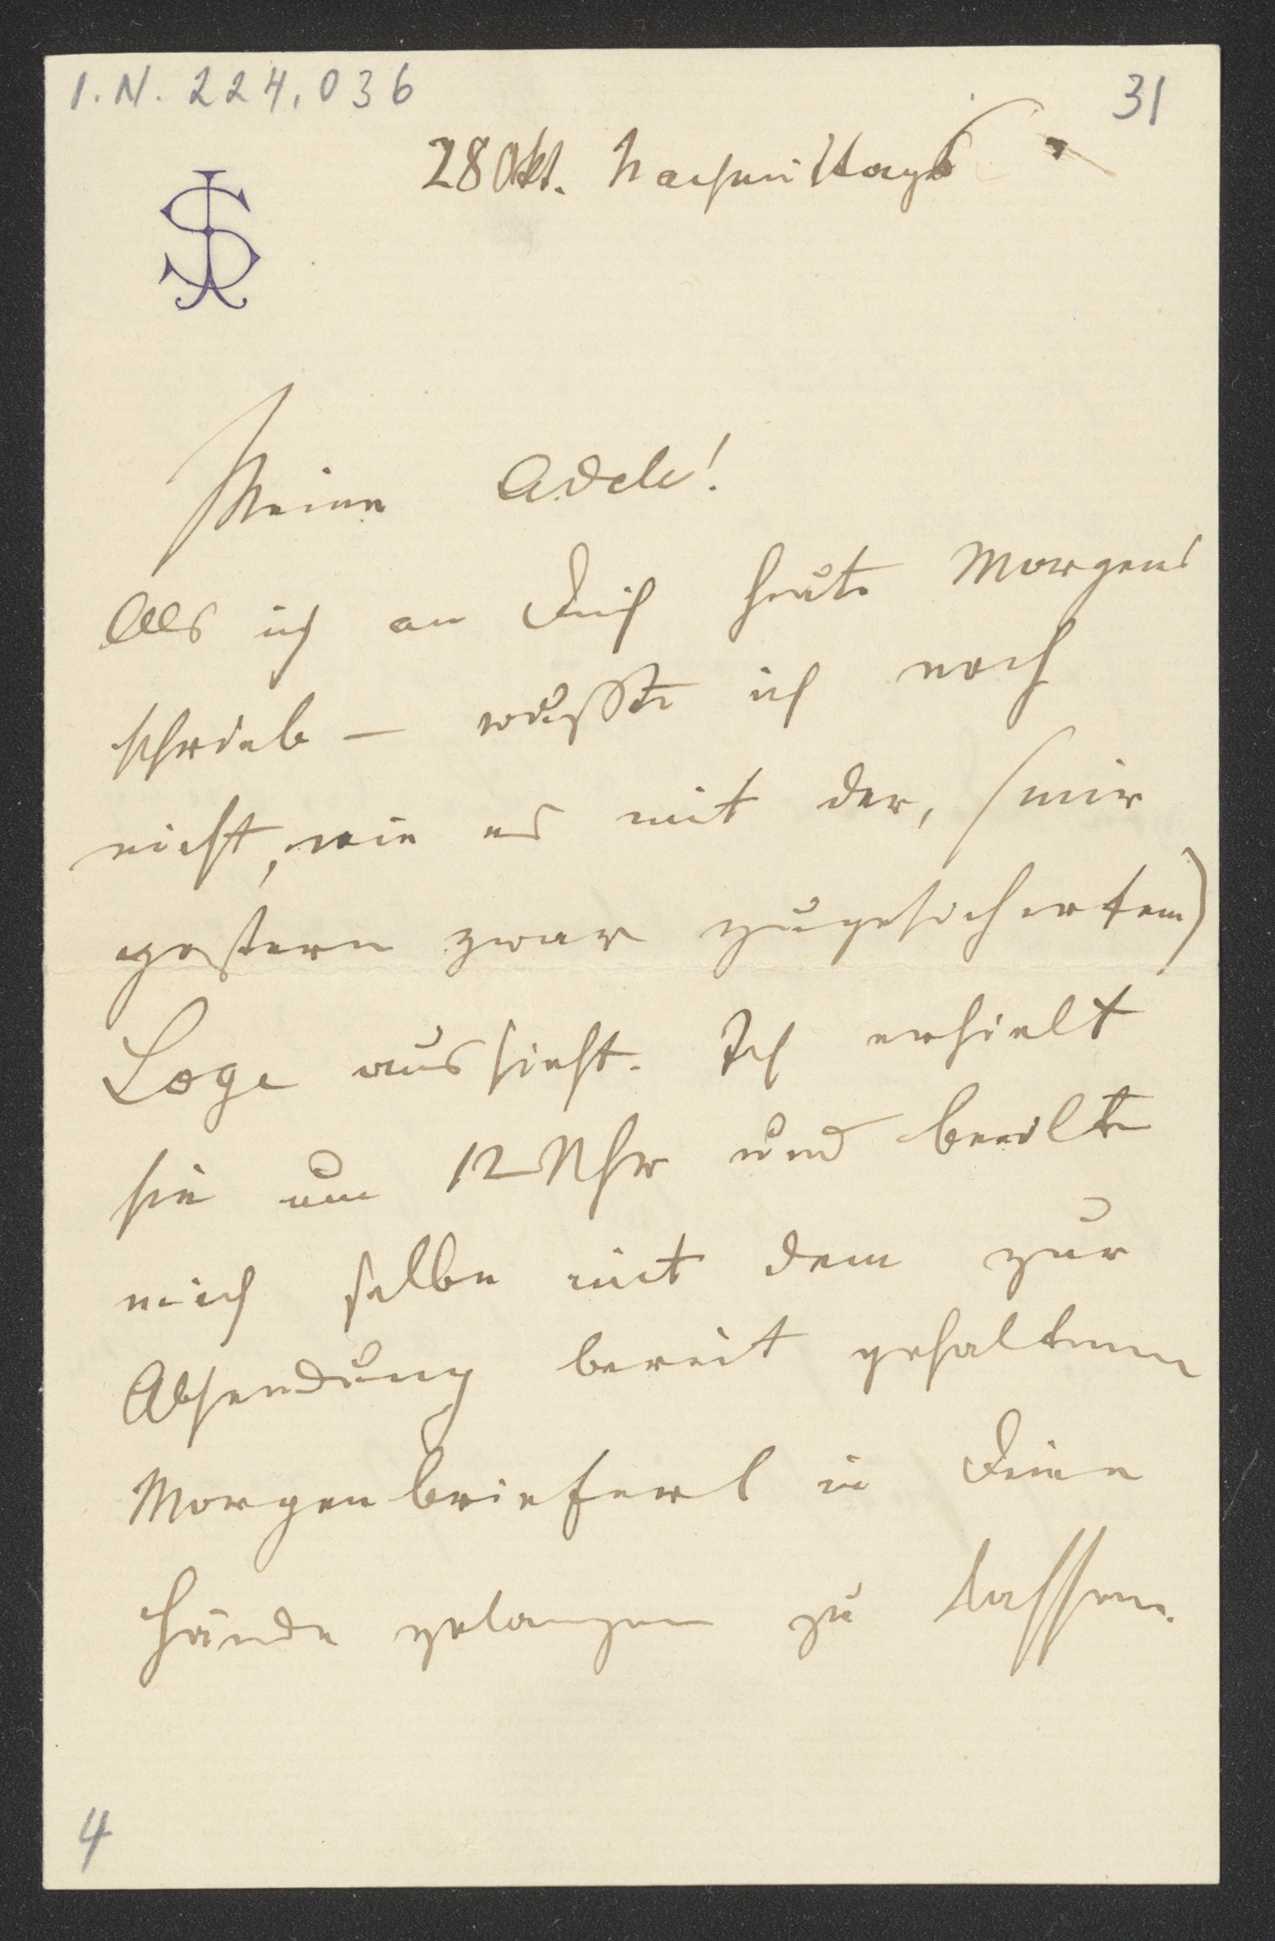 I.N. 224.036
31
28 Okt. Nachmittags
JS
Meine Adele!
Als ich an Dich heute Morgens
schrieb – wußte ich noch
nicht, wie es mit der, (mir
gestern zwar zugesicherten)
Loge aussieht. Ich erhielt
sie um 12 Uhr und beeilte
mich selbe mit dem zur
Absendung bereit gehaltenen
Morgenbrieferl in Deine
Hände gelangen zu lassen.
4